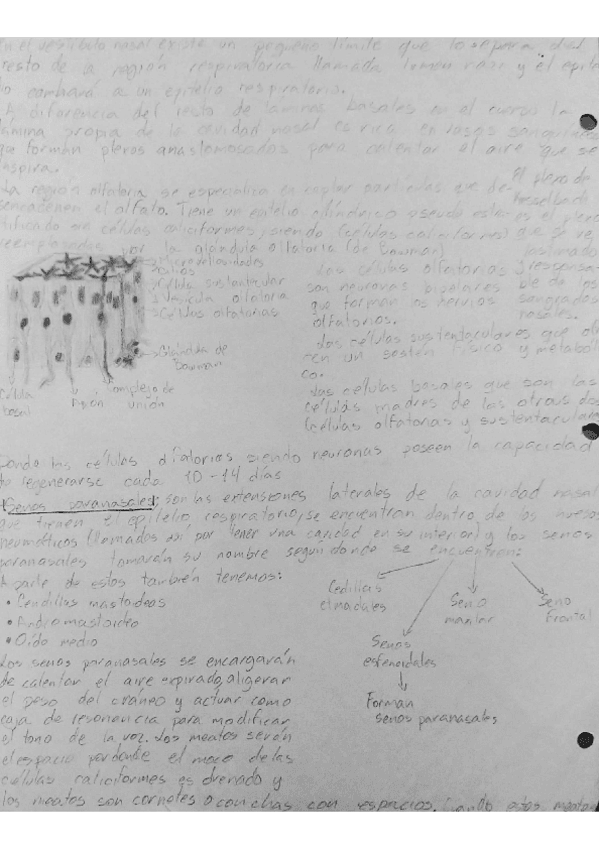 En el vestíbulo nasal existe un pequeño límite que lo separa del
resto de la región respiratoria llamada limen nasi y el epite
lio cambiará a un epitelio respiratorio.
A diferencia del resto de láminas basales en el cuerpo la
lámina propia de la cavidad nasal es rica en vasos sanguíneos
que forman plexos anastomosados para calentar el aire que se
inspira.
La región olfatoria se especializa en captar partículas que de-
sencadenen el olfato. Tiene un epitelio cilíndrico pseudo estra-
tificado sin células caliciformes, siendo (células caliciformes)
reemplazadas por la glándula olfatoria (de Bowman)
El plexo de
Kesselbach
es el plexo
que se ve
lastimado
y responsa-
ble de los
sangrados
nasales.
Microvellosidades
Cilios
Célula sustentacular
Vesícula olfatoria
Células olfatorias
Glándula de
Bowman
Célula
basal
Axón
Complejo de
unión
Las células olfatorias
son neuronas bipolares
que forman los nervios
olfatorios.
Las células sustentaculares que ofre
cen un sostén físico y metabóli
co.
Las células basales que son las
células madres de las otras dos
(células olfatorias y sustentaculares)
Donde las células olfatorias siendo neuronas poseen la capacidad
de regenerarse cada 10-14 días
Senos paranasales: son las extensiones laterales de la cavidad nasal
que tienen el epitelio respiratorio, se encuentran dentro de los huesos
neumáticos (llamados así por tener una cavidad en su interior) y los senos
paranasales tomarán su nombre según donde se encuentren:
Aparte de estos también tenemos:
• Cendillas mastoideas
• Andro mastoideo
• Oído medio
Cedillas
etmoidales
Seno
maxilar
Seno
Frontal
Senos
esfenoidales
Forman
senos paranasales
Los senos paranasales se encargarán
de calentar el aire expirado, aligerar
el peso del cráneo y actuar como
caja de resonancia para modificar
el tono de la voz. Los meatos serán
el espacio por donde el moco de las
células caliciformes es drenado y
los meatos son cornetes o conchas con espacios. Cuando estos meatos